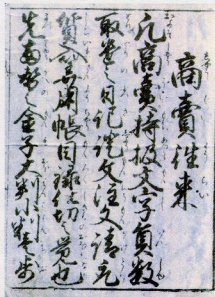 商賣往来
凡商賣持扱文字員数
取遣之日記證文注文請取
質入算用帳目録仕切之覚也
先両替之金子大判小判壹歩